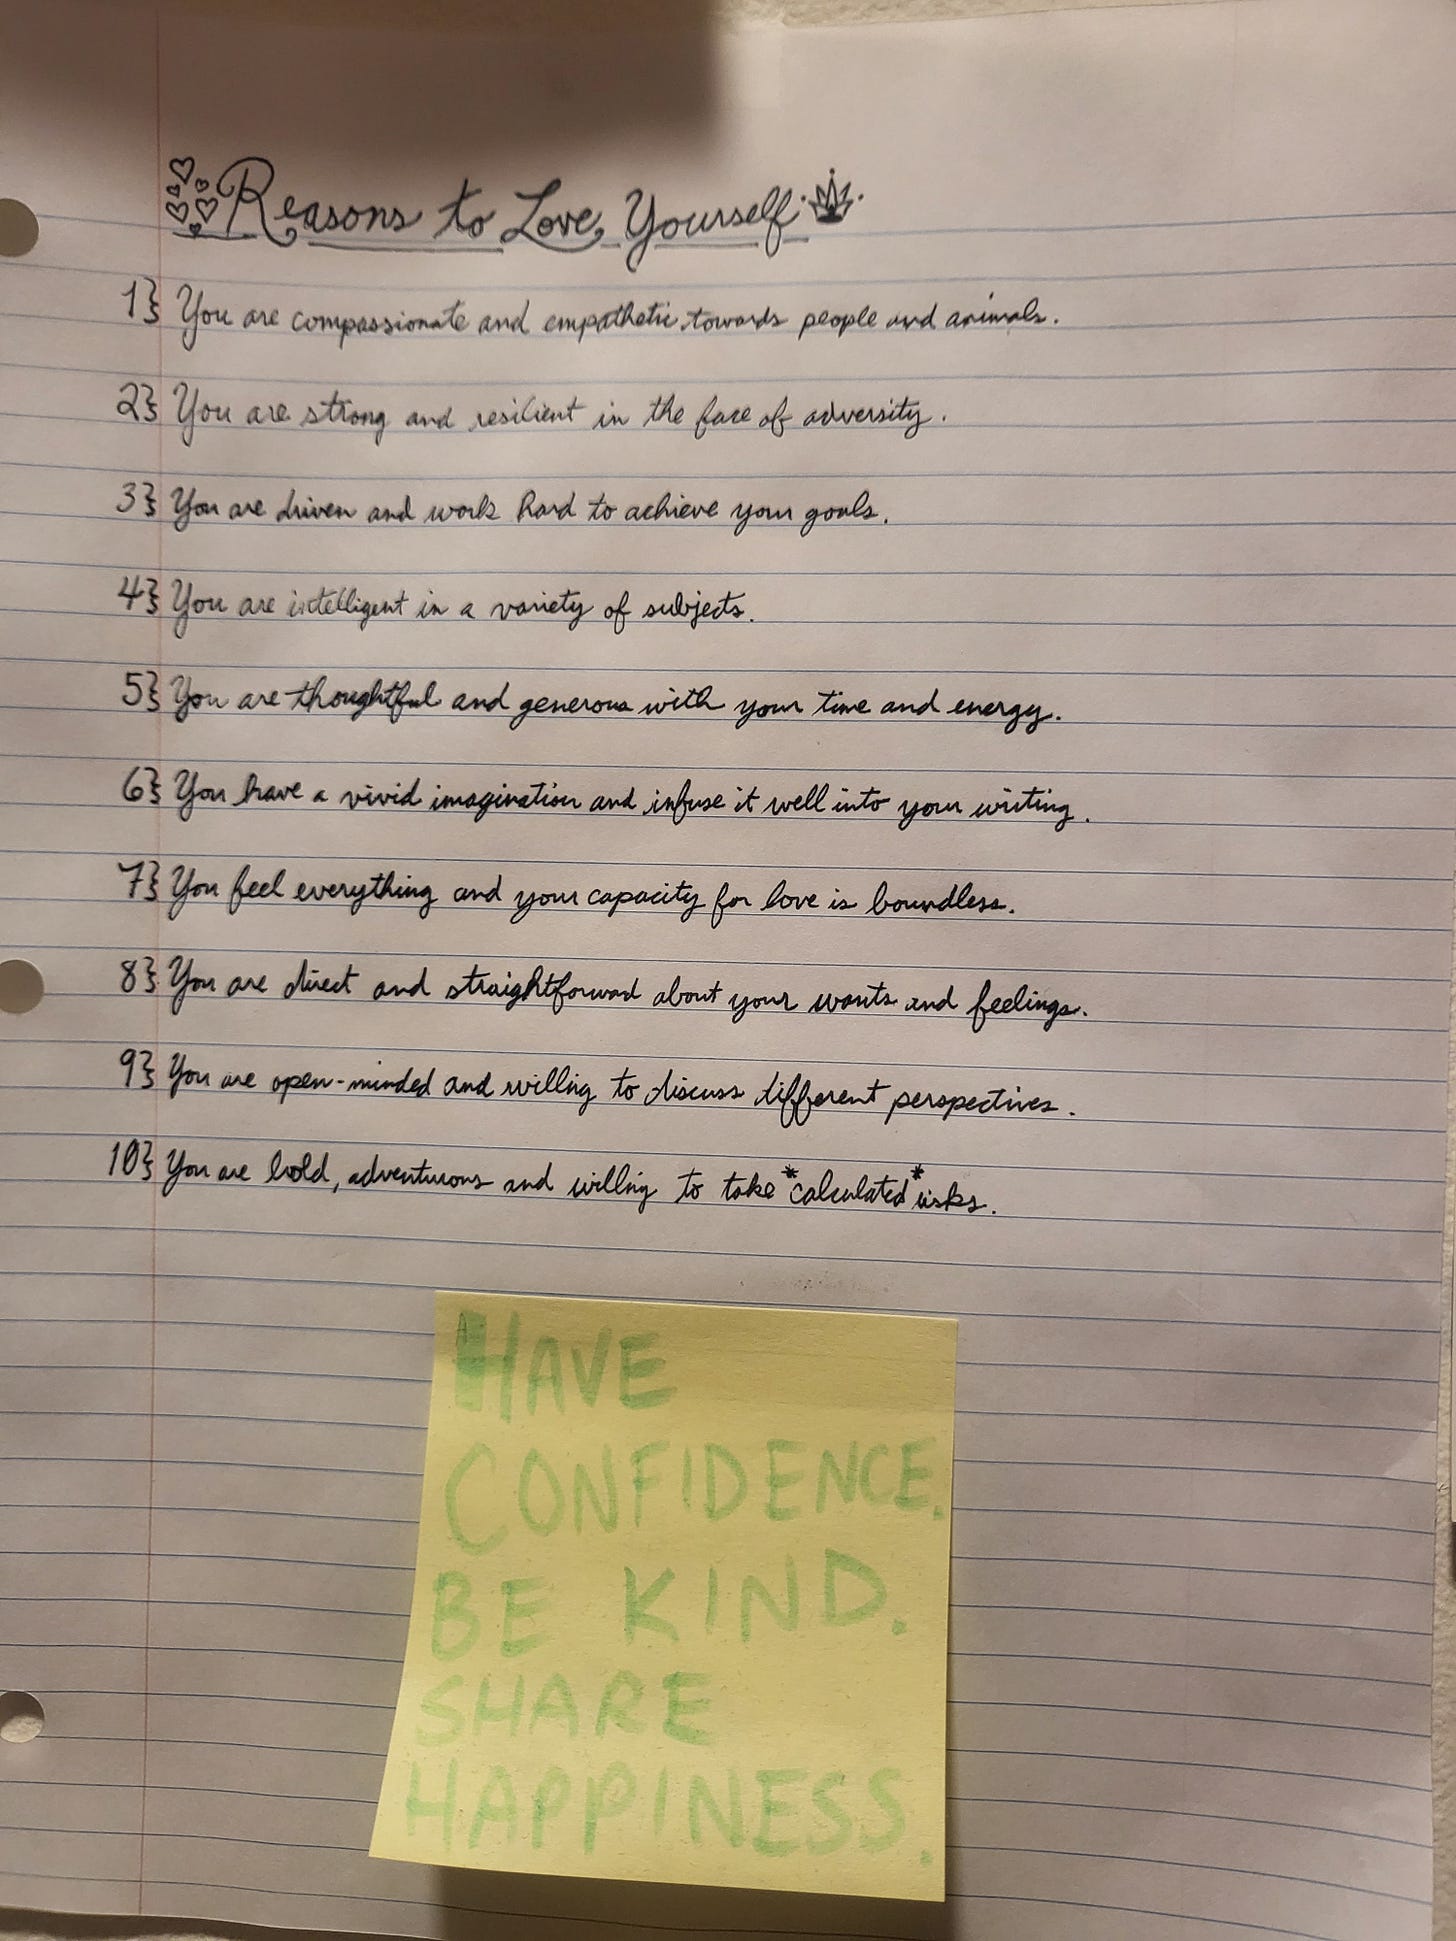 Reasons to Love Yourself
1} You are compassionate and empathetic towards people and animals.
2} You are strong and resilient in the face of adversity.
3} You are driven and work hard to achieve your goals.
4} You are intelligent in a variety of subjects.
5} You are thoughtful and generous with your time and energy.
6} You have a vivid imagination and infuse it well into your writing.
7} You feel everything and your capacity for love is boundless.
8} You are direct and straightforward about your wants and feelings.
9} You are open-minded and willing to discuss different perspectives.
10} You are bold, adventurous and willing to take *calculated* risks.
HAVE
CONFIDENCE.
BE KIND.
SHARE
HAPPINESS.